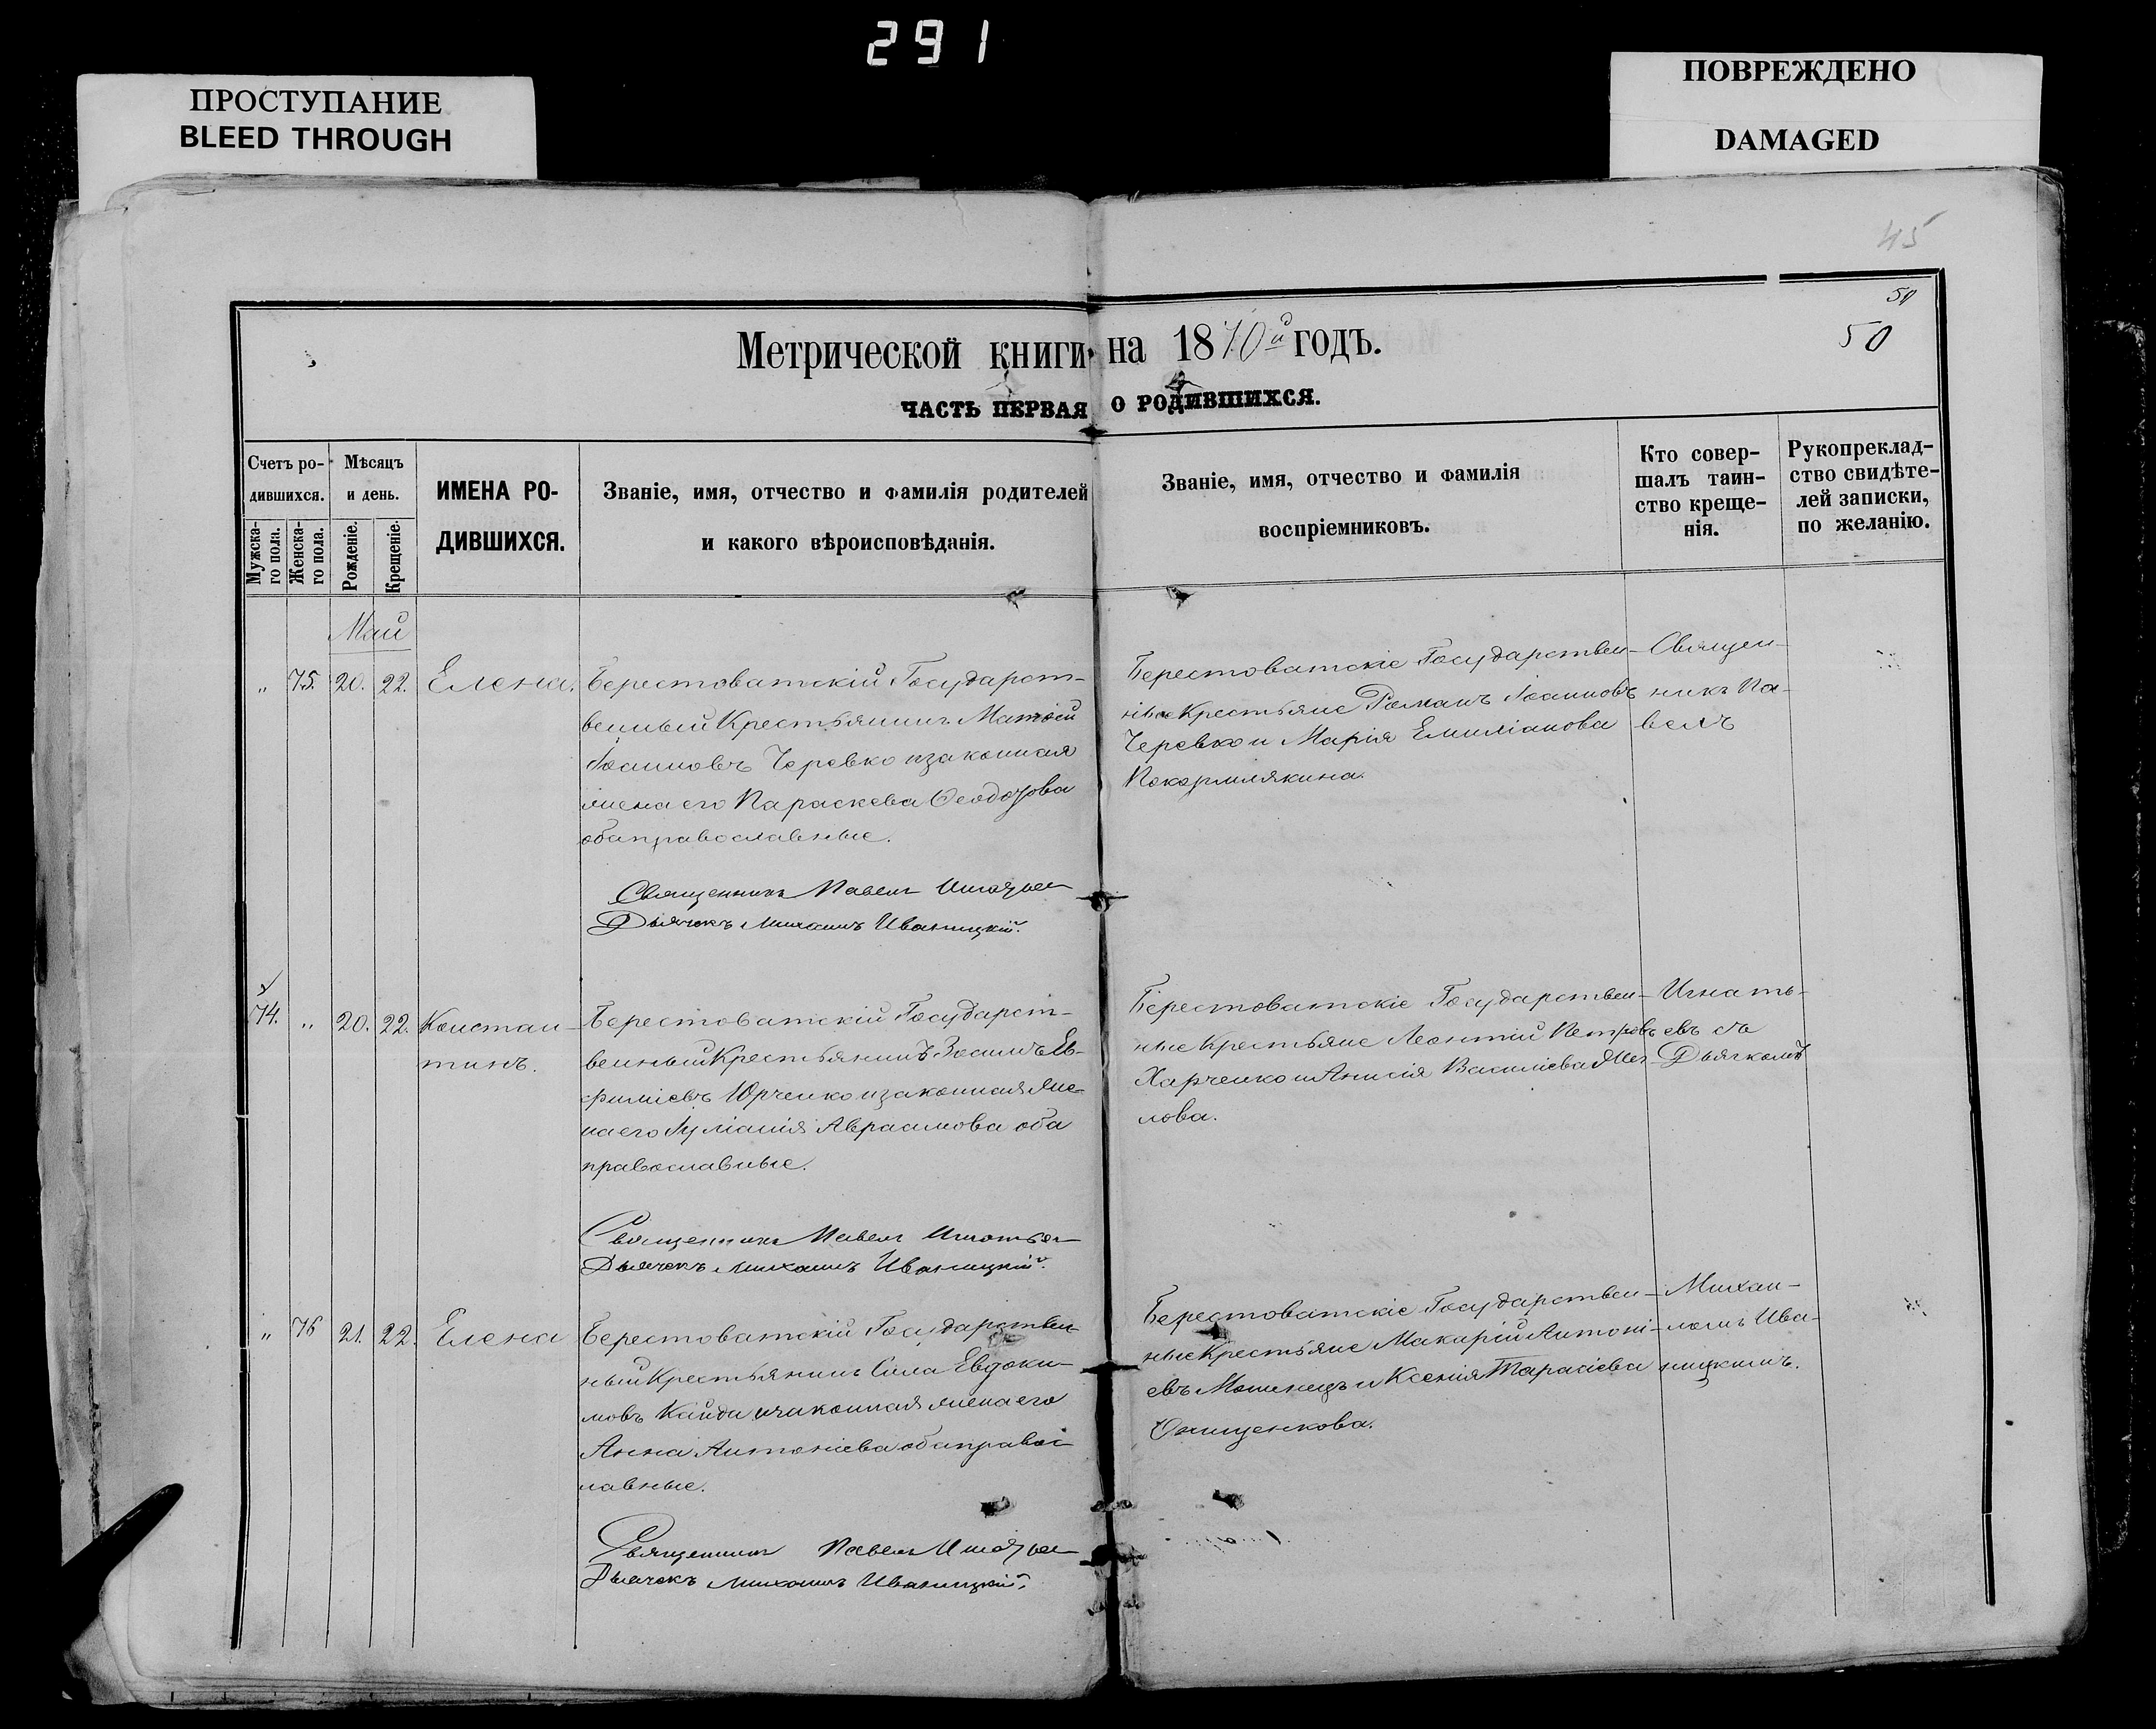 291
ПРОСТУПАНИЕ
BLEED THROUGH
ПОВРЕЖДЕНО
DAMAGED
45
50
50
Метрической книги на 1870й годъ.
ЧАСТЬ ПЕРВАЯ О РОДИВШИХСЯ.
Счетъ ро-
дившихся.
Мужска-
го пола.
Женска-
го пола.
Мѣсяцъ
и день.
Рожденіе.
Крещеніе.
ИМЕНА РО-
ДИВШИХСЯ.
Званіе, имя, отчество и фамилія родителей
и какого вѣроисповѣданія.
Званіе, имя, отчество и фамилія
воспріемниковъ.
Кто совер-
шалъ таин-
ство креще-
нія.
Рукопреклад-
ство свидѣте-
лей записки,
по желанію.
Май
" 75. 20. 22. Елена.
Берестоватскій Государст-
венный Крестьянинъ Матѳей
Іоанновъ Черевко и законная
жена его Параскева Ѳеодорова
оба православные.
Священникъ Павелъ
Дьячокъ Михаилъ Иваницкій.
Берестоватскіе Государствен-
ные Крестьяне Романъ Іоанновъ
Черевко и Марія Емиліанова
Покормлякина.
Священ-
никъ Па-
велъ
74. " 20. 22. Констан-
тинъ.
Берестоватскій Государст-
венный Крестьянинъ Зосимъ Ев-
фиміевъ Юрченко и законная же-
на его Іуліанія Авраамова оба
православные.
Священникъ Павелъ Игнатьев
Дьячокъ Михаилъ Иваницкій.
Берестоватскіе Государствен-
ные Крестьяне Леонтій Петровъ
Харченко и Анисія Василіева
лова.
Игнать-
евъ съ
Дьячкомъ
" 76 21. 22. Елена
Берестоватскій Государствен-
ный Крестьянинъ Сила Евдоки-
мовъ Кайда и законная жена его
Анна Антоніева оба правос-
лавные.
Священникъ Павелъ
Дьячокъ Михаилъ Иваницкій.
Берестоватскіе Государствен-
ные Крестьяне Макарій Антоні-
евъ и Ксенія Тарасіева
Онищенкова.
Михаи-
ломъ Ива-
ницкимъ.